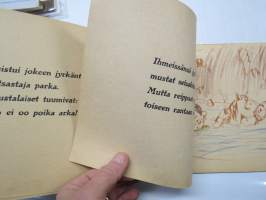 istui jokeen jyrkänt
lsastaja parka.
ustalaiset tuumivat:
ei oo poika arka!
Ihmeissänsä
mustat seisoi
Mutta reippaas
toiseen rantaan